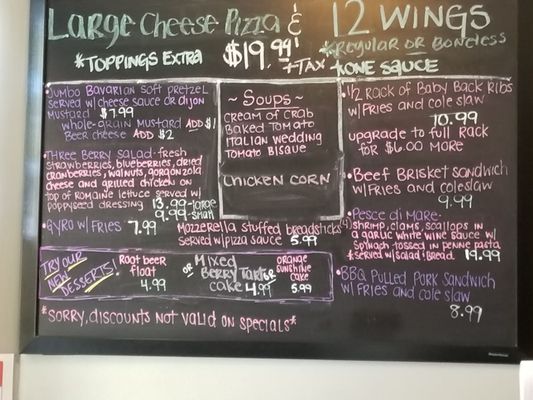 Large Cheese Pizza & 12 Wings
*Toppings Extra $19.99! +Tax
*Regular or Boneless
*one sauce
•Jumbo Bavarian Soft Pretzel
served w/ cheese sauce or dijon
mustard $7.99
whole-grain mustard ADD $1
Beer cheese ADD $2
•Three Berry Salad-fresh
strawberries, blueberries, dried
cranberries, walnuts, gorgonzola
cheese and grilled chicken on
top of romaine lettuce served w/
poppyseed dressing 13.99-large
9.99-small
•Gyro w/ Fries 7.99
~ Soups ~
Cream of Crab
Baked Tomato
Italian Wedding
Tomato Bisque
Chicken Corn
Mozzerella stuffed breadsticks
served w/ pizza sauce 5.99
•1/2 rack of Baby Back Ribs
w/ Fries and cole slaw
10.99
upgrade to full rack
for $6.00 more
•Beef Brisket Sandwich
w/ Fries and coleslaw
9.99
•Pesce di Mare-
shrimp, clams, scallops in
a garlic white wine sauce w/
spinach tossed in penne pasta
*served w/ salad & bread 19.99
•BBQ Pulled Pork Sandwich
w/ Fries and cole slaw
8.99
Try our
new
desserts!
Root beer
float
4.99
or
Mixed
Berry Tart or
cake 4.99
orange
sunshine
cake
5.99
*Sorry, discounts not valid on specials*